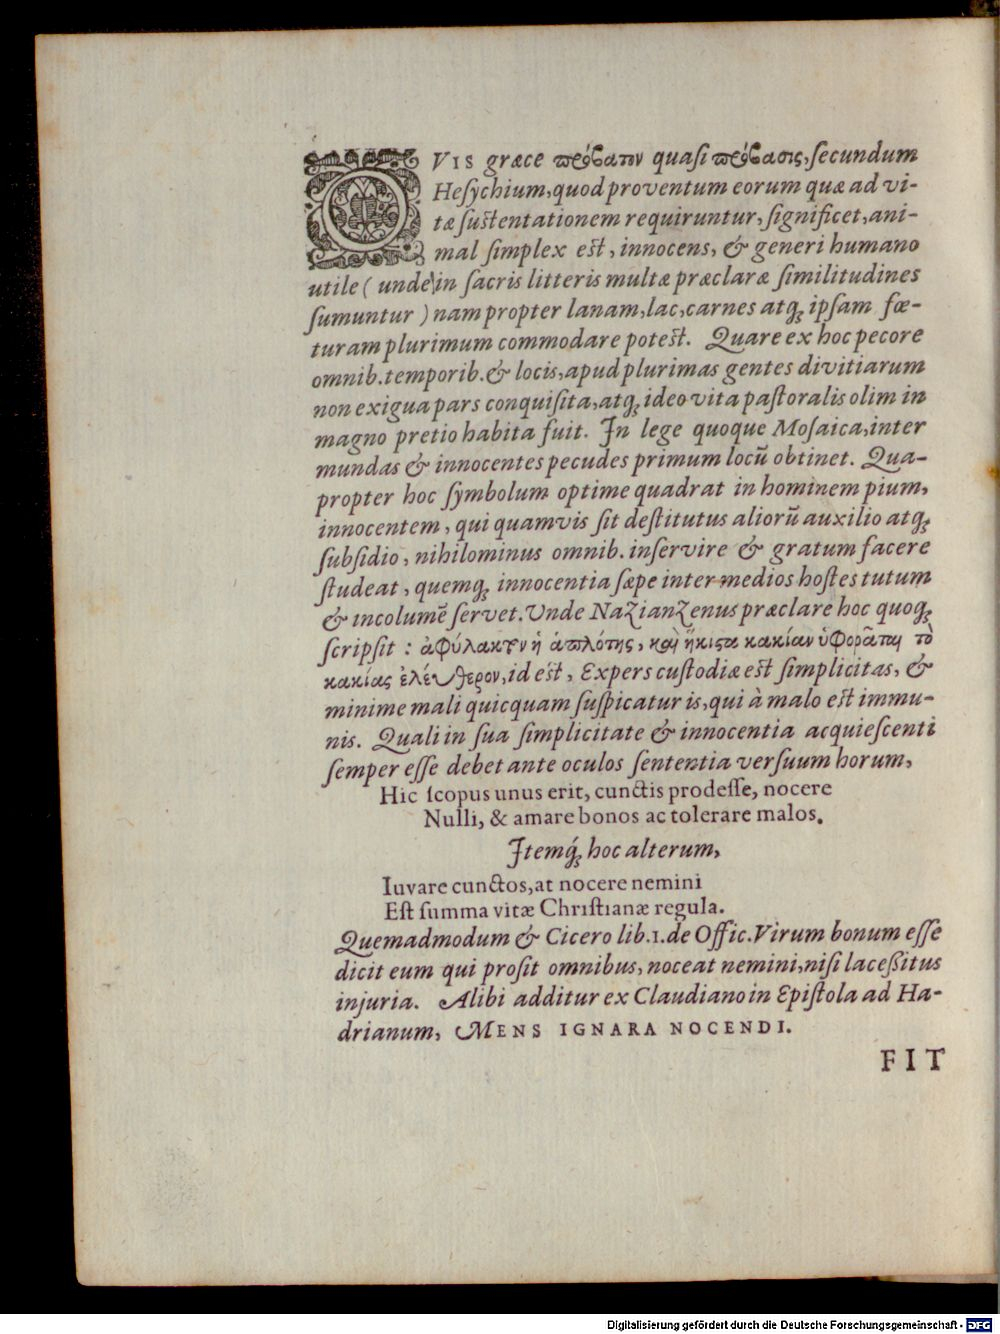 OVIS græce πρόβατον quasi πρόβασις, secundum
Hesychium, quod proventum eorum quæ ad vi-
tæ sustentationem requiruntur, significet, ani-
mal simplex est, innocens, & generi humano
utile ( unde in sacris litteris multæ præclaræ similitudines
sumuntur ) nam propter lanam, lac, carnes atq; ipsam fœ-
turam plurimum commodare potest. Quare ex hoc pecore
omnib. temporib. & locis, apud plurimas gentes divitiarum
non exigua pars conquisita, atq; ideo vita pastoralis olim in
magno pretio habita fuit. In lege quoque Mosaica, inter
mundas & innocentes pecudes primum locũ obtinet. Qua-
propter hoc symbolum optime quadrat in hominem pium,
innocentem, qui quamvis sit destitutus aliorũ auxilio atq;
subsidio, nihilominus omnib. inservire & gratum facere
studeat, quemq; innocentia sæpe inter medios hostes tutum
& incolumẽ servet. Unde Nazianzenus præclare hoc quoq;
scripsit : ἀφύλακτον ἡ ἁπλότης, καὶ ἥκιστα κακίαν ὑφορᾶται τὸ
κακίας ἐλεύθερον, id est, Expers custodiæ est simplicitas, &
minime mali quicquam suspicatur is, qui à malo est immu-
nis. Quali in sua simplicitate & innocentia acquiescenti
semper esse debet ante oculos sententia versuum horum,
Hic scopus unus erit, cunctis prodesse, nocere
Nulli, & amare bonos ac tolerare malos.
Itemq́; hoc alterum,
Iuvare cunctos, at nocere nemini
Est summa vitæ Christianæ regula.
Quemadmodum & Cicero lib. 1. de Offic. Virum bonum esse
dicit eum qui prosit omnibus, noceat nemini, nisi lacessitus
injuria. Alibi additur ex Claudiano in Epistola ad Ha-
drianum, MENS IGNARA NOCENDI.
FIT
Digitalisierung gefördert durch die Deutsche Forschungsgemeinschaft - DFG